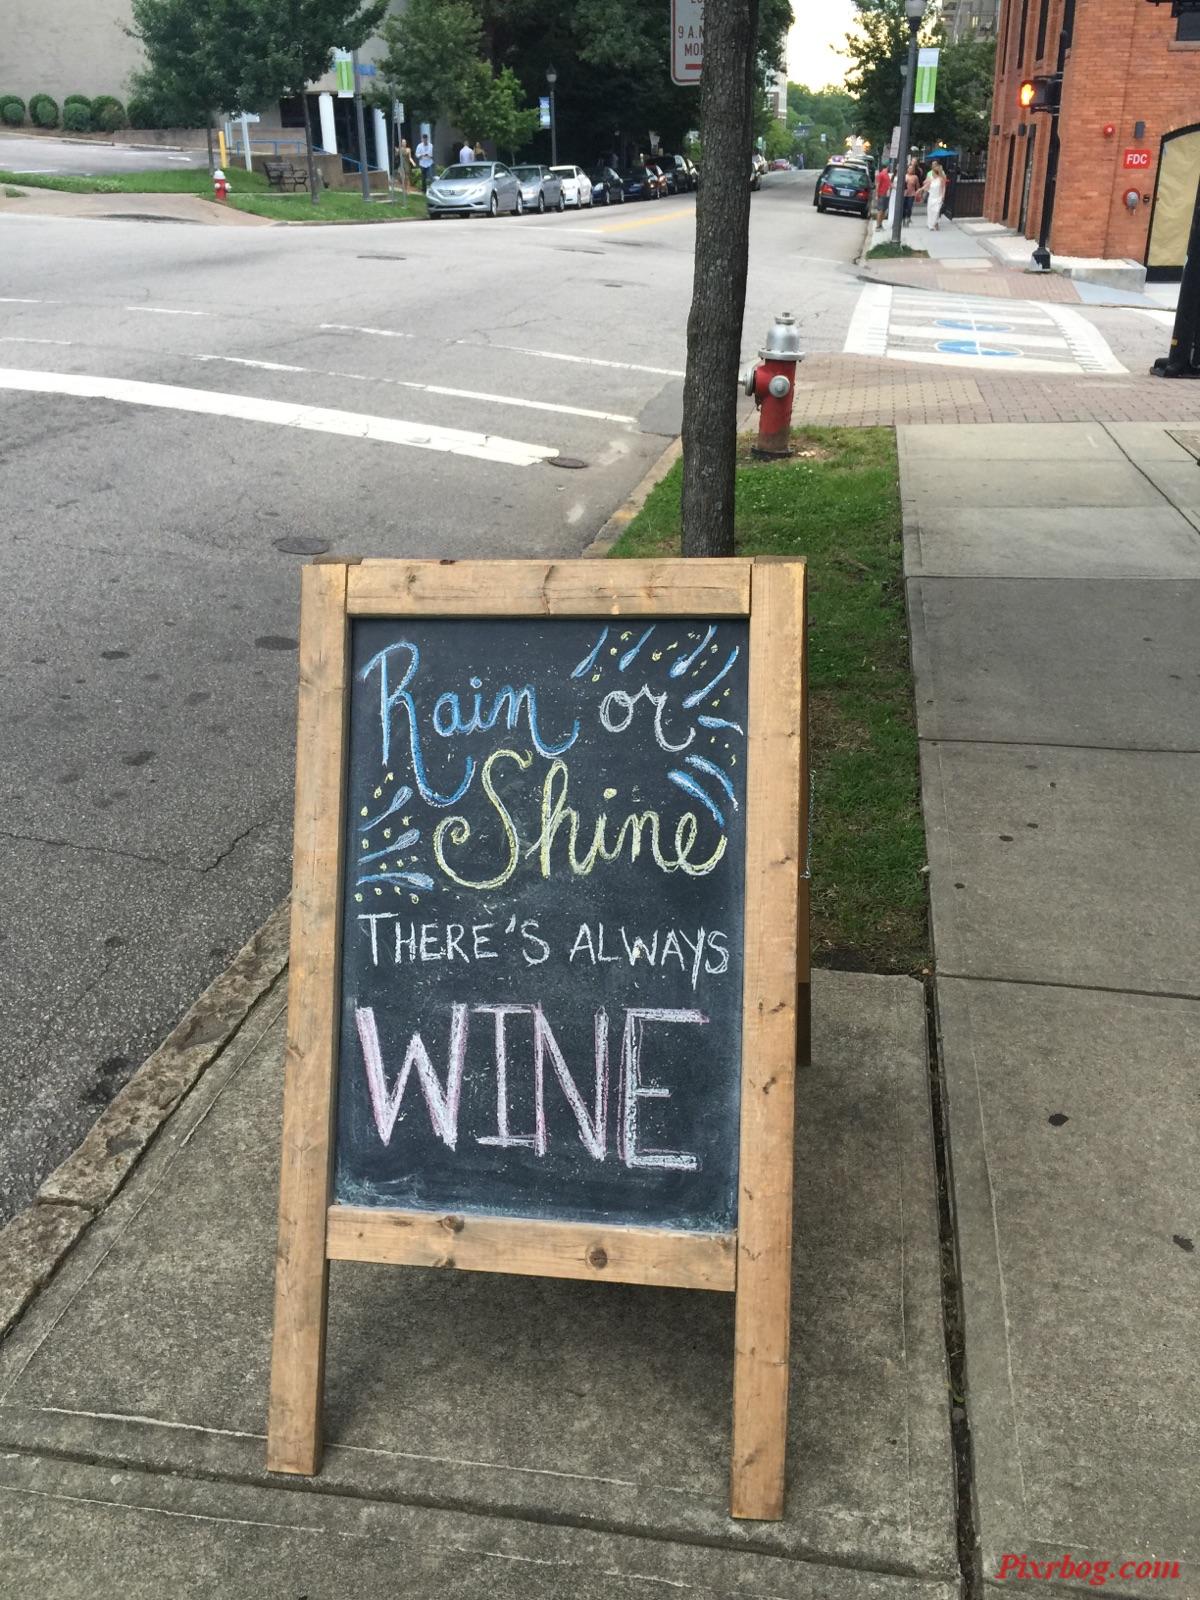 9 A.M
Rain or
Shine
THERE'S ALWAYS
WINE
FDC
Pixrbog.com